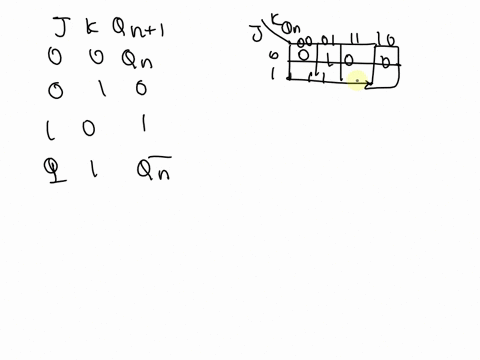 J K Qn+1
0 0 Qn
0 1 0
1 0 1
1 Q̅n
J K Qn
00 01 11 10
0 0 1 0 0
1 1 1